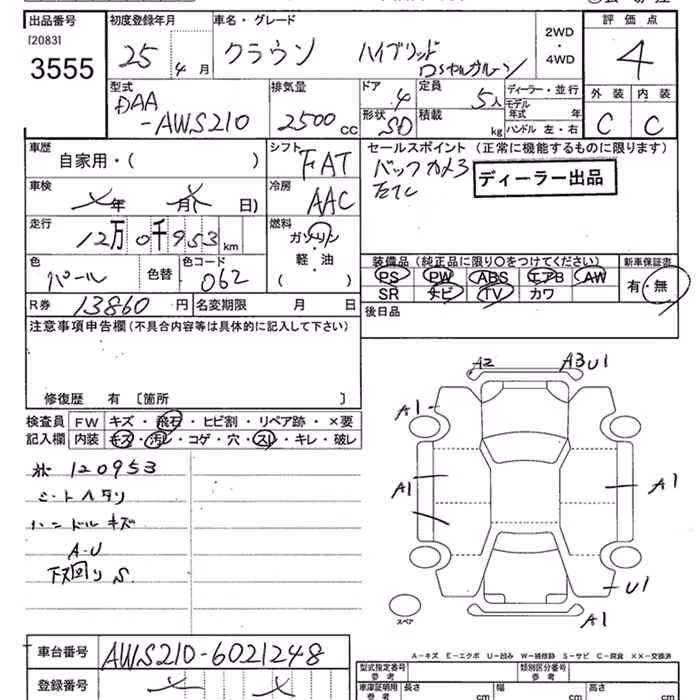 出品番号 初度登録年月 車名・グレード 評価点
[2083] 3555 25年4月 クラウン ハイブリッド 2WD・4WD 4
ロイヤルサルーン
型式 排気量 ドア 定員 ディーラー・並行 外装 内装
DAA-AWS210 2500CC 4 5人 モデル年式 年 C C
形状 SD 積載 kg ハンドル 左・右
車歴 シフト セールスポイント (正常に機能するものに限ります)
自家用・( ) FAT バックカメラ
ETC ディーラー出品
車検 年 月( 日) 冷房 AAC
走行 12万0千953km 燃料 ガソリン・軽・油( )
装備品(純正品に限り○をつけてください) 新車保証書
色 パール 色替 色コード 062 PS PW ABS エアB AW 有・無
SR ナビ TV カワ
R券 13860円 名変期限 月 日 後日品
注意事項申告欄(不具合内容等は具体的に記入して下さい)
修復歴 有 [箇所 ]
検査員 FW キズ・飛石・ヒビ割・リペア跡・×要
記入欄 内装 キズ・汚レ・コゲ・穴・スレ・キレ・破レ
120953
シートヘタリ
ハンドルキズ
A-U
下回りS
A2 A3U1
A1
A1 A1
U1
A1
スペア
A-キズ E-エクボ U-凹み W-補修跡 S-サビ C-腐食 XX-交換済
車台番号 AWS210-6021248
型式指定番号 参考 類別区分番号 参考
登録番号
車庫証明用 参考 長さ cm 幅 cm 高さ cm